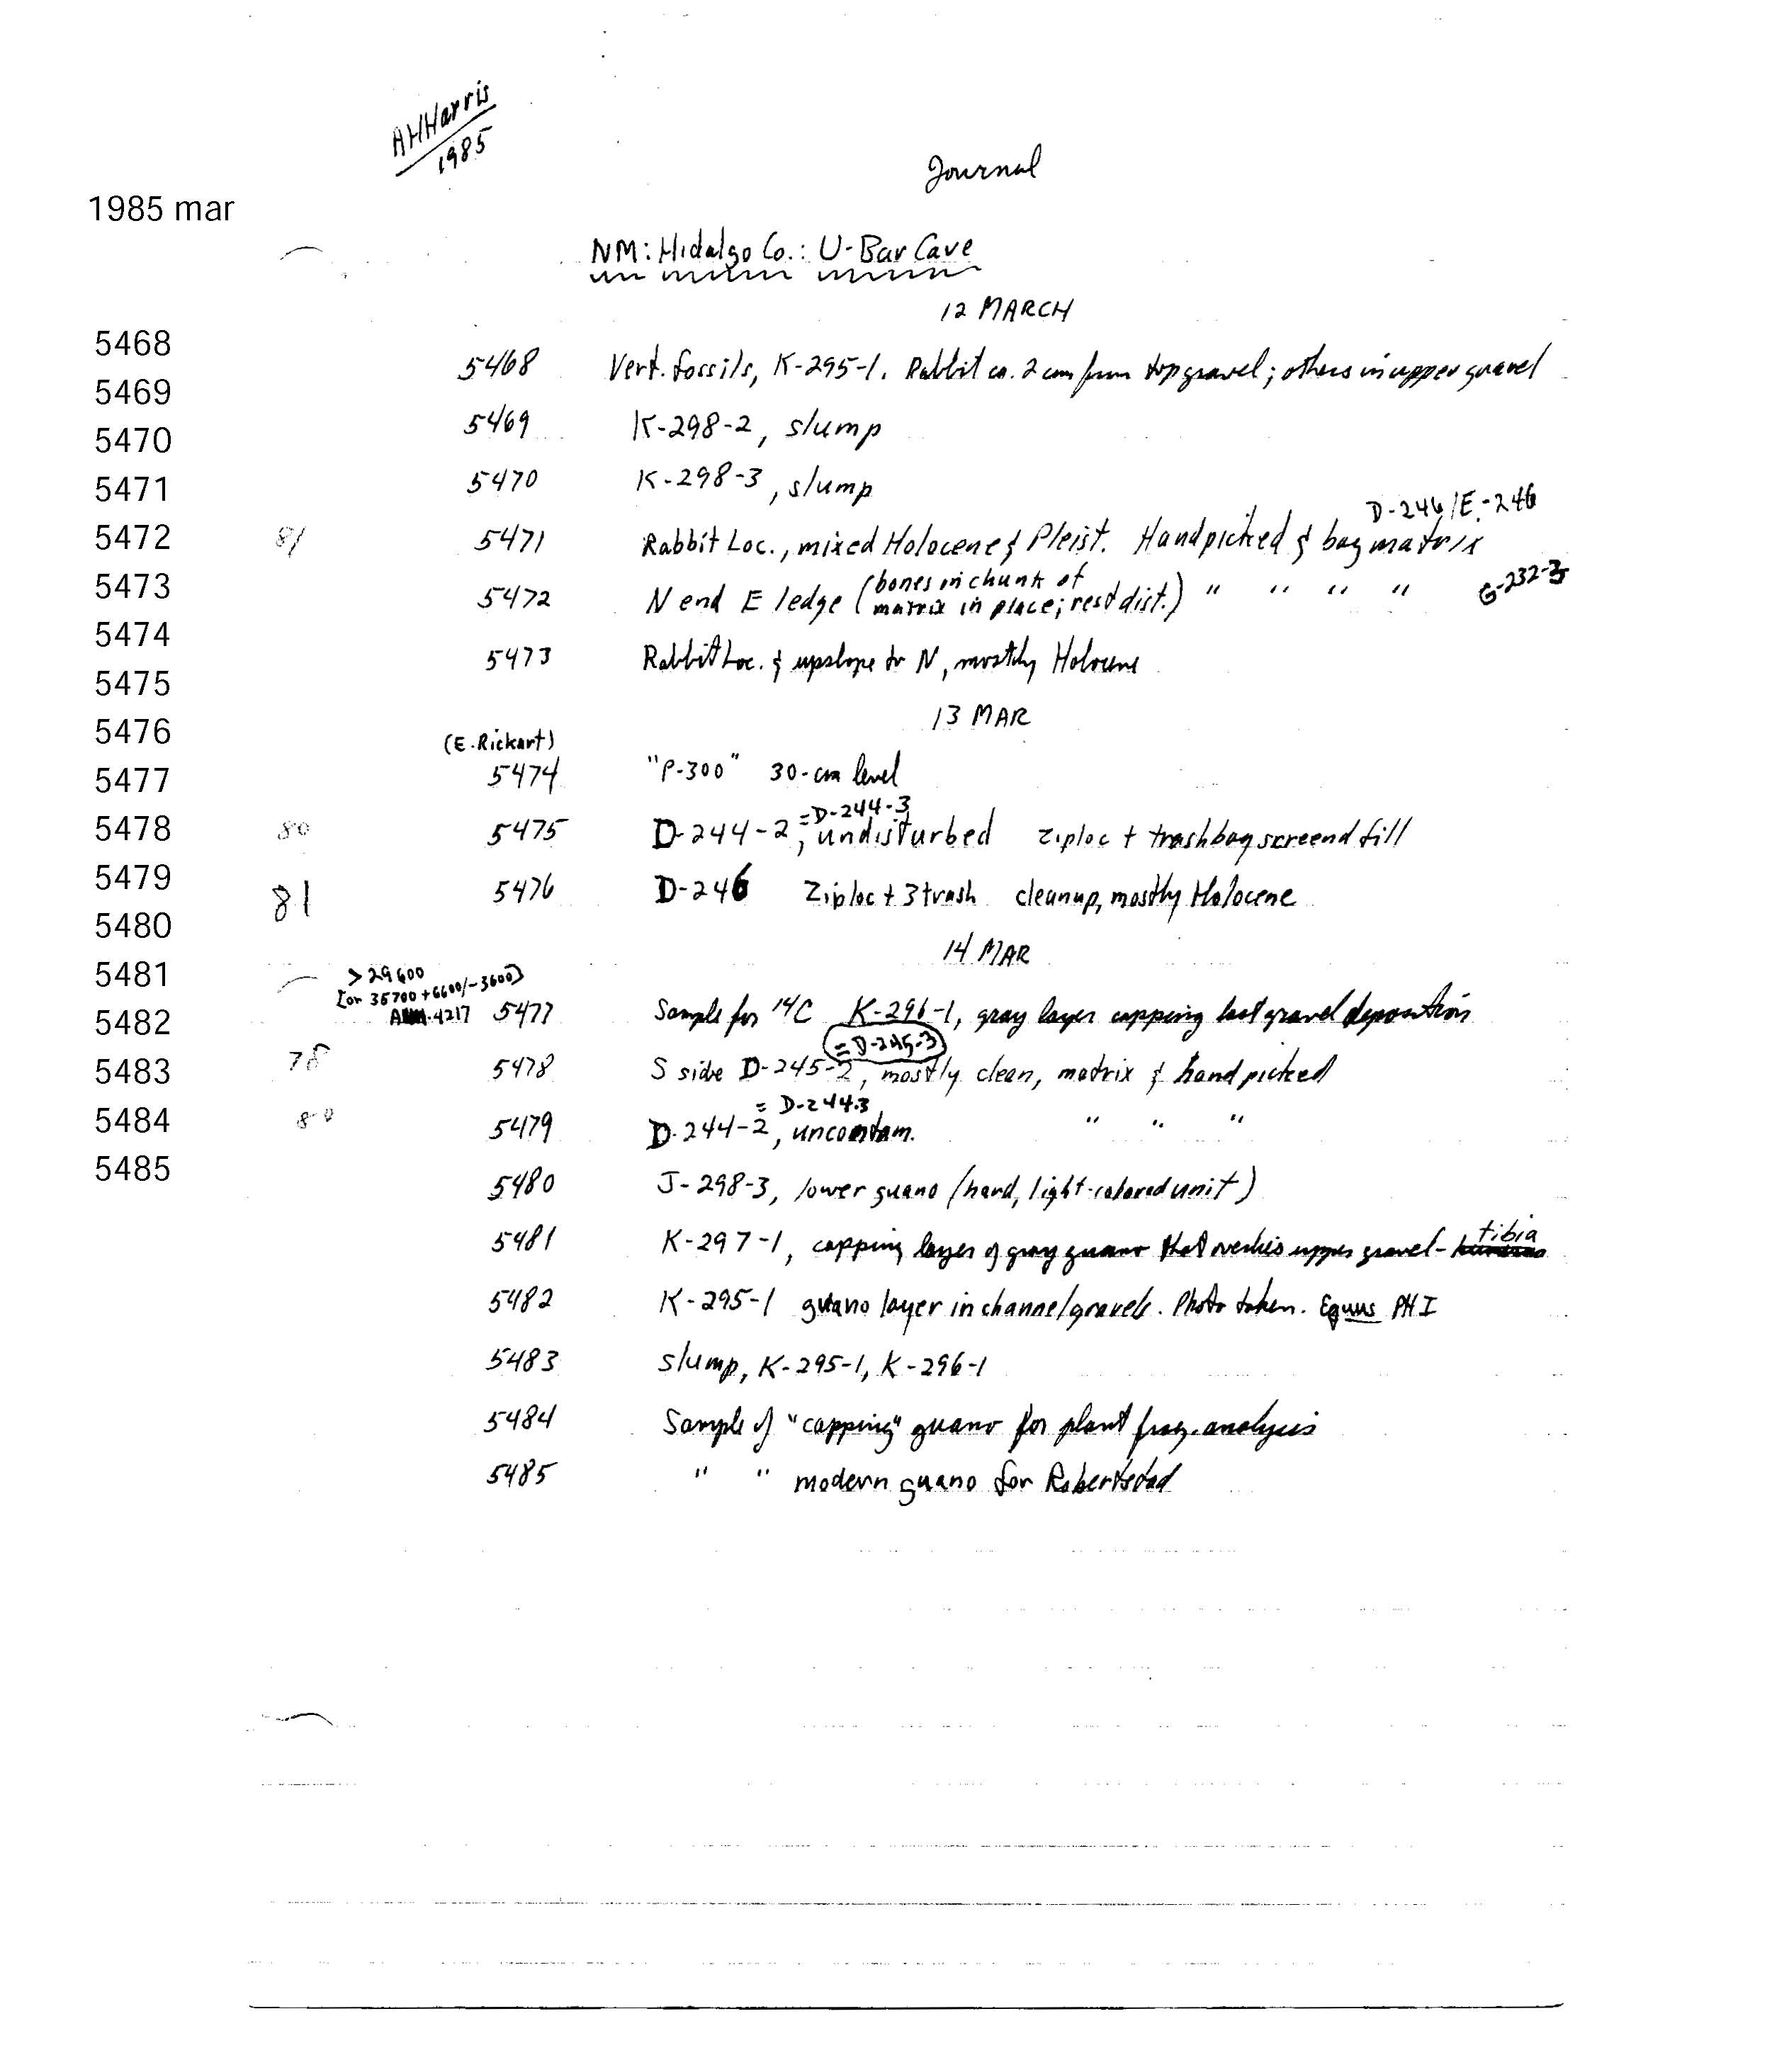 AHHarris
1985
Journal
1985 mar
NM: Hidalgo Co.: U-Bar Cave
12 MARCH
5468
5469
5470
5471
5472
5473
5474
5475
5476
5477
5478
5479
5480
5481
5482
5483
5484
5485
5468 Vert. fossils, K-295-1. Rabbit ca. 2 cm from top gravel; others in upper gravel
5469 K-298-2, slump
5470 K-298-3, slump
D-246/E-246
81 5471 Rabbit Loc., mixed Holocene & Pleist. Handpicked & bag matrix
5472 N end E ledge (bones in chunk of matrix in place; rest dist.) " " " " G-232-3
5473 Rabbit Loc. & upslope to N, mostly Holocene
13 MAR
(E. Rickart)
5474 "P-300" 30-cm level
= D-244-3
80 5475 D-244-2, undisturbed Ziploc + trashbag screend fill
81 5476 D-246 Ziploc + 3 trash cleanup, mostly Holocene
14 MAR
> 29600
[or 35700 +6600/-3600]
4217 5477 Sample for 14C K-296-1, gray layer capping last gravel deposition
= D-245-3
78 5478 S side D-245-2, mostly clean, matrix & handpicked
= D-244.3
80 5479 D-244-2, uncontam. " " "
5480 J-298-3, lower guano (hard, light-colored unit)
tibia
5481 K-297-1, capping layer of gray guano that overlies upper gravel -
5482 K-295-1 guano layer in channel gravels. Photo taken. Equus PH I
5483 slump, K-295-1, K-296-1
5484 Sample of "capping" guano for plant frag. analysis
5485 " " modern guano for